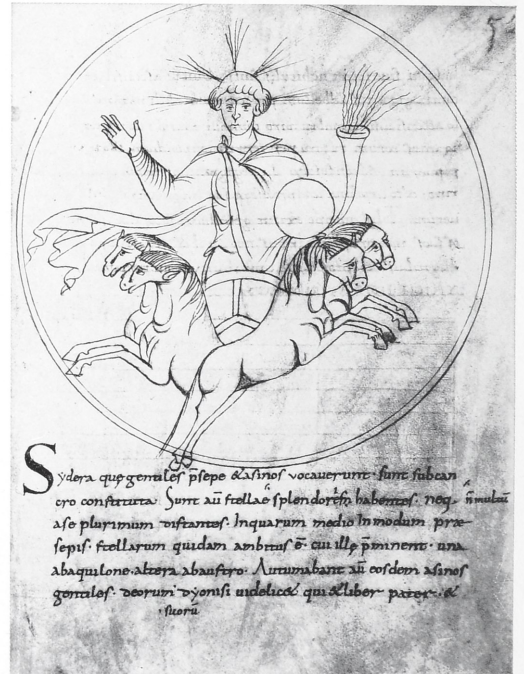 Sydera quę gentiles p̄sepe & asinos vocauerunt · sunt sub can
cro constituta · Sunt aū stellae splendorēm habentes · neq; n̄ multū
a se plurimum distantes · In quarum medio In modum præ
sepis · stellarum quidam ambitus ē · cui illę p̄minent · una
ab aquilone · altera ab austro · Autumabant aū eosdem asinos
gentiles · deorum dyonisi uidelic& qui & liber pater · &
· suorū